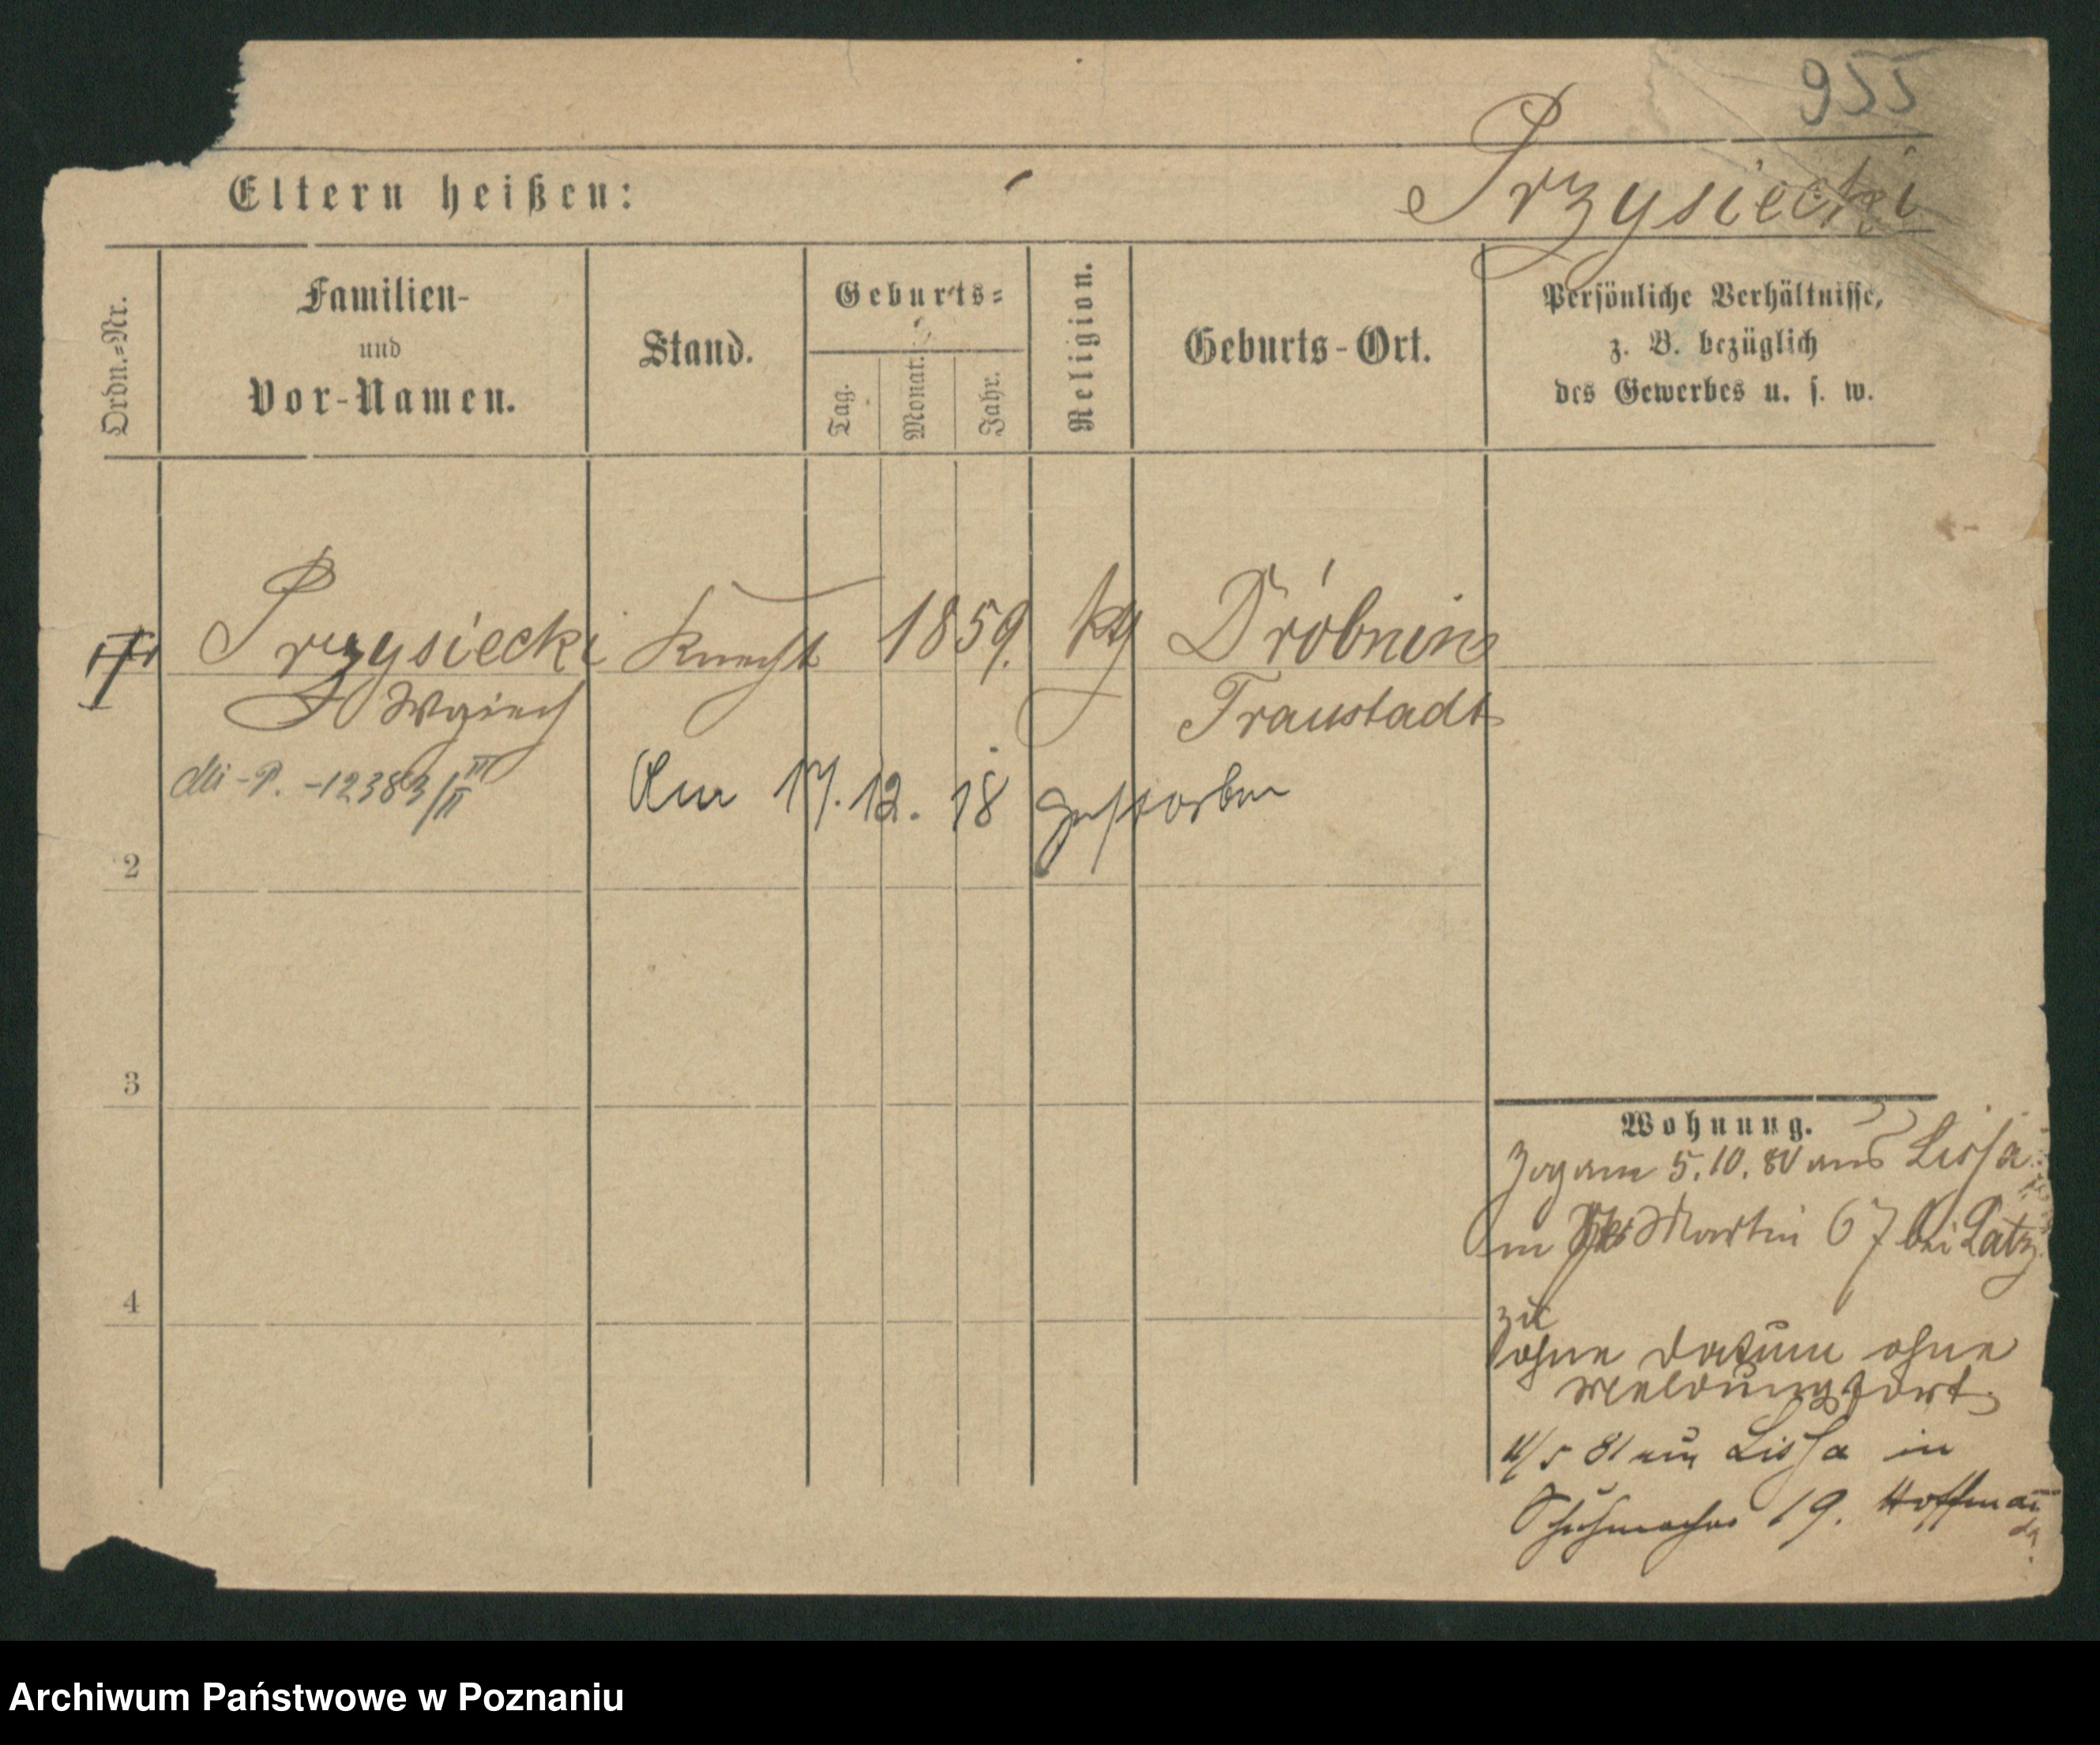 955
Eltern heißen:
Przysiecki
Ordn.-Nr.
Familien-
und
Vor-Namen.
Stand.
Geburts-
Tag.
Monat.
Jahr.
Religion.
Geburts-Ort.
Persönliche Verhältnisse,
z. B. bezüglich
des Gewerbes u. s. w.
Przysiecki Knecht 1859. Dróbnin
Fraustadt
-12383/
Am 17.12.18 gestorben
2
3
4
Wohnung.
Zog am 5.10.80 aus Lissa
Martin 67 bei
zu
ohne Datum ohne
Meldung fort
81 aus Lissa in
Schuhmacher 19. Hoffmann
Archiwum Państwowe w Poznaniu